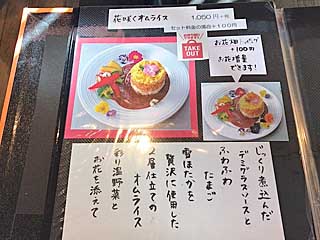 花咲くオムライス
1,050円+税
セット料金の場合+100円
TAKE OUT
+100円
お花増量
できます！
じっくり煮込んだ
デミグラスソースと
ふわふわ
たまご
雪ほたかを
贅沢に使用した
2層仕立ての
オムライス
彩り温野菜と
お花を添えて